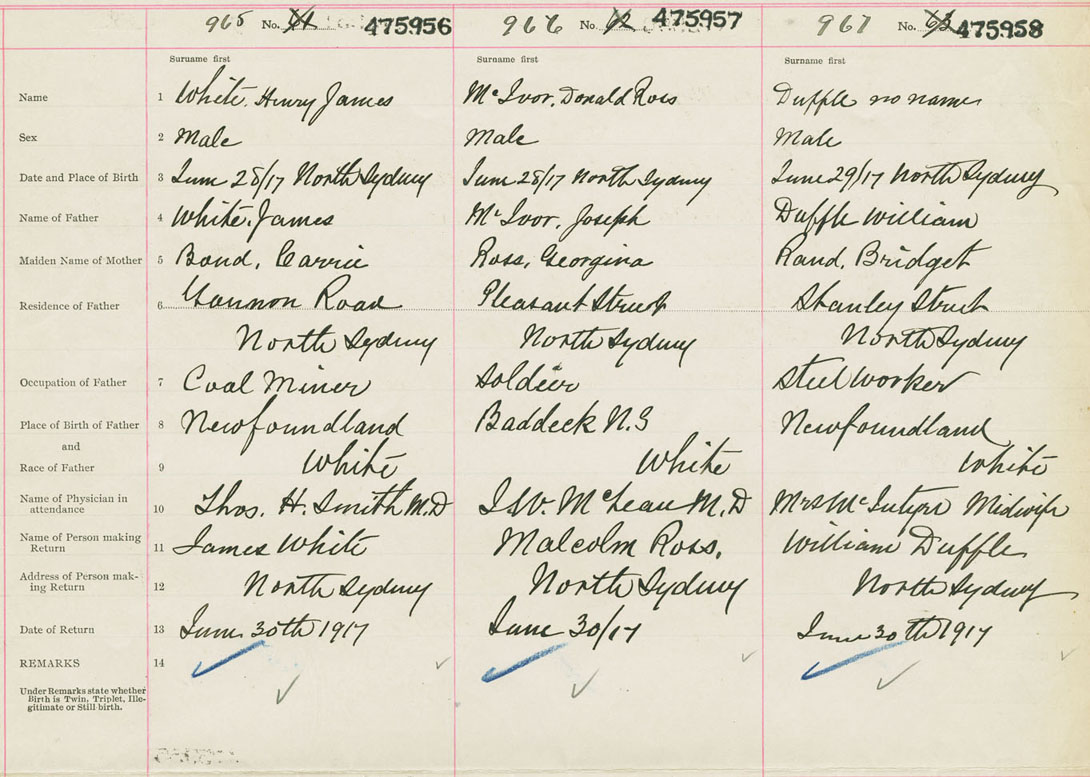 965 No. 61 475956 966 No. 62 475957 967 No. 63 475958
Surname first Surname first Surname first
Name 1 White, Henry James McIvor, Donald Ross Duffle no name
Sex 2 Male Male Male
Date and Place of Birth 3 June 28/17 North Sydney June 28/17 North Sydney June 29/17 North Sydney
Name of Father 4 White, James McIvor, Joseph Duffle William
Maiden Name of Mother 5 Bond, Carrie Ross, Georgina Rand, Bridget
Residence of Father 6 Gannon Road Pleasant Street Stanley Street
North Sydney North Sydney North Sydney
Occupation of Father 7 Coal Miner Soldier Steel worker
Place of Birth of Father 8 Newfoundland Baddeck N.S Newfoundland
and
Race of Father 9 White White White
Name of Physician in
attendance 10 Thos. H. Smith M.D McLean M.D Mrs McIntyre Midwife
Name of Person making
Return 11 James White Malcolm Ross. William Duffle
Address of Person mak-
ing Return 12 North Sydney North Sydney North Sydney
Date of Return 13 June 30th 1917 June 30/17 June 30th 1917
REMARKS 14
Under Remarks state whether
Birth is Twin, Triplet, Ille-
gitimate or Still birth.